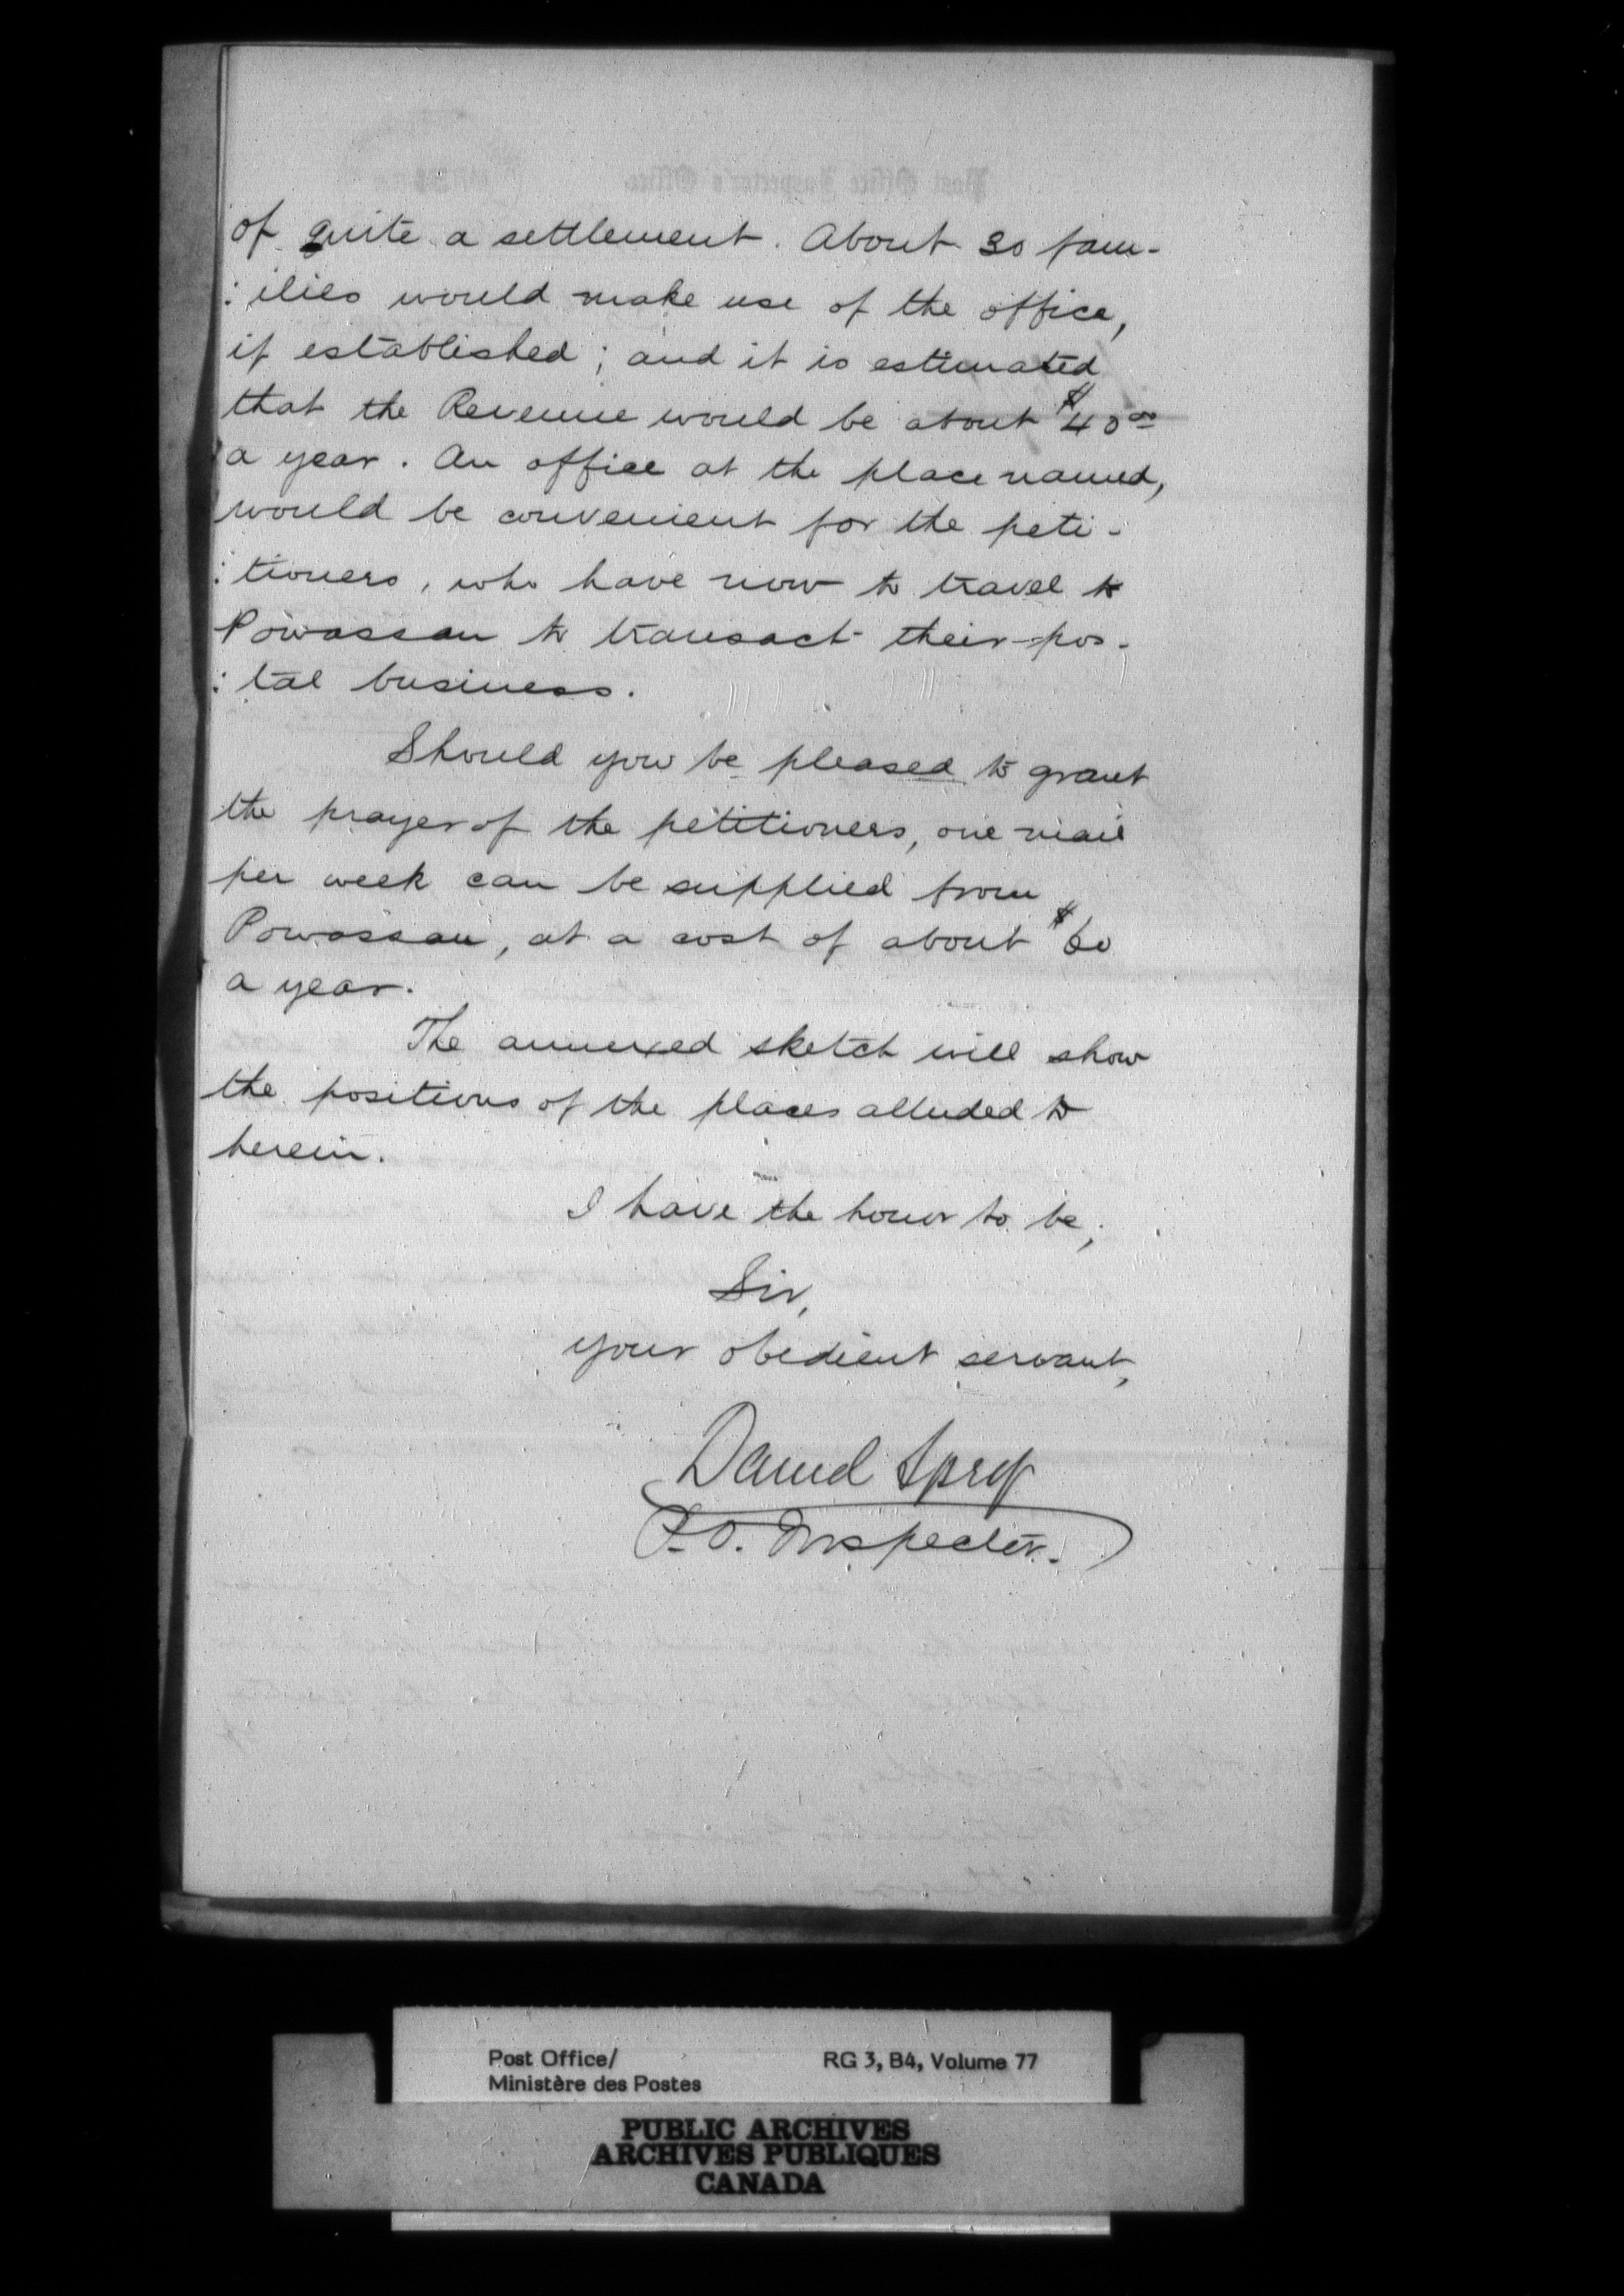 of quite a settlement. About 30 fam-
: ilies would make use of the office,
if established; and it is estimated
that the Revenue would be about $40 00
a year. An office at the place named,
would be convenient for the peti-
: tioners, who have now to travel to
Powassan to transact their pos-
: tal business.
Should you be pleased to grant
the prayer of the petitioners, one mail
per week can be supplied from
Powassan, at a cost of about $60
a year.
The annexed sketch will show
the positions of the places alluded to
herein.
I have the honor to be,
Sir,
your obedient servant,
Daniel Spry
P.O. Inspector.
Post Office/
Ministère des Postes
RG 3, B4, Volume 77
PUBLIC ARCHIVES
ARCHIVES PUBLIQUES
CANADA